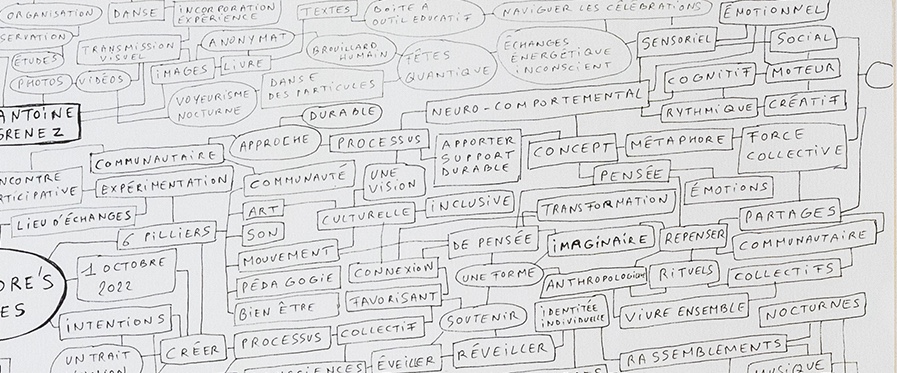 ORGANISATION
DANSE
INCORPORATION
EXPÉRIENCE
TEXTES
BOITE À
OUTIL EDUCATIF
NAVIGUER LES CÉLÉBRATIONS
ÉMOTIONNEL
SERVATION
TRANSMISSION
VISUEL
ANONYMAT
BROUILLARD
HUMAIN
FÊTES
QUANTIQUE
ÉCHANGES
ÉNERGÉTIQUE
INCONSCIENT
SENSORIEL
SOCIAL
ÉTUDES
PHOTOS
VIDÉOS
IMAGES
LIVRE
COGNITIF
MOTEUR
VOYEURISME
NOCTURNE
DANSE
DES PARTICULES
NEURO-COMPORTEMENTAL
RYTHMIQUE
CRÉATIF
ANTOINE
GRENEZ
DURABLE
APPROCHE
PROCESSUS
APPORTER
SUPPORT
DURABLE
CONCEPT
MÉTAPHORE
FORCE
COLLECTIVE
COMMUNAUTAIRE
NCONTRE
RTICIPATIVE
EXPÉRIMENTATION
COMMUNAUTÉ
UNE
VISION
PENSÉE
ÉMOTIONS
LIEU D'ÉCHANGES
ART
CULTURELLE
INCLUSIVE
TRANSFORMATION
PARTAGES
6 PILLIERS
SON
DE PENSÉE
IMAGINAIRE
REPENSER
COMMUNAUTAIRE
MOUVEMENT
1 OCTOBRE
2022
PÉDAGOGIE
CONNEXION
UNE FORME
ANTHROPOLOGIQUE
RITUELS
COLLECTIFS
ORE'S
ES
BIEN ÊTRE
FAVORISANT
SOUTENIR
IDENTITÉE
INDIVIDUELLE
VIVRE ENSEMBLE
NOCTURNES
INTENTIONS
CRÉER
PROCESSUS
COLLECTIF
UN TRAIT
ÉVEILLER
RÉVEILLER
RASSEMBLEMENTS
MUSIQUE